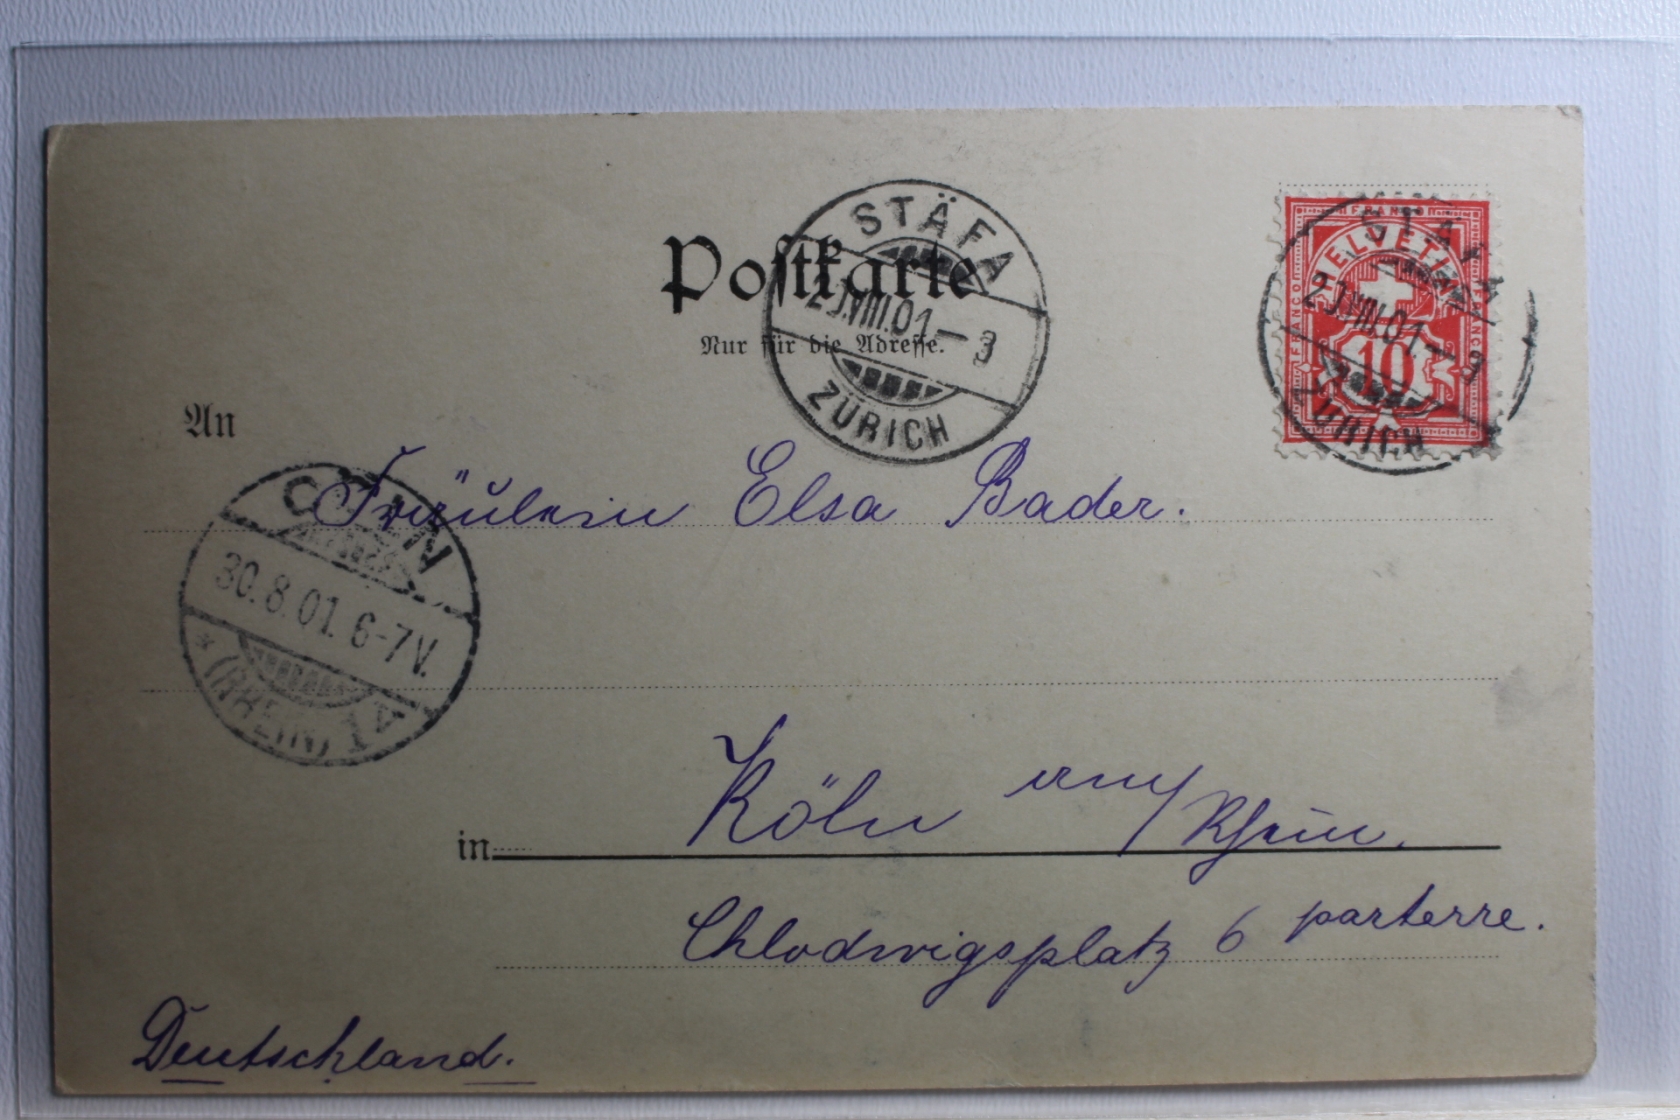 Postkarte
Nur für die Adresse.
STÄFA
VIII.01-3
ZÜRICH
FRANCO
HELVETIA
FRANCO
FRANCO
10
STÄFA
VIII.01-3
ZÜRICH
An
Fräulein Elsa Bader.
CÖLN
30.8.01. 6-7V.
* (RHEIN) 1
Köln am/Rhein.
in
Chlodwigsplatz 6 parterre.
Deutschland.